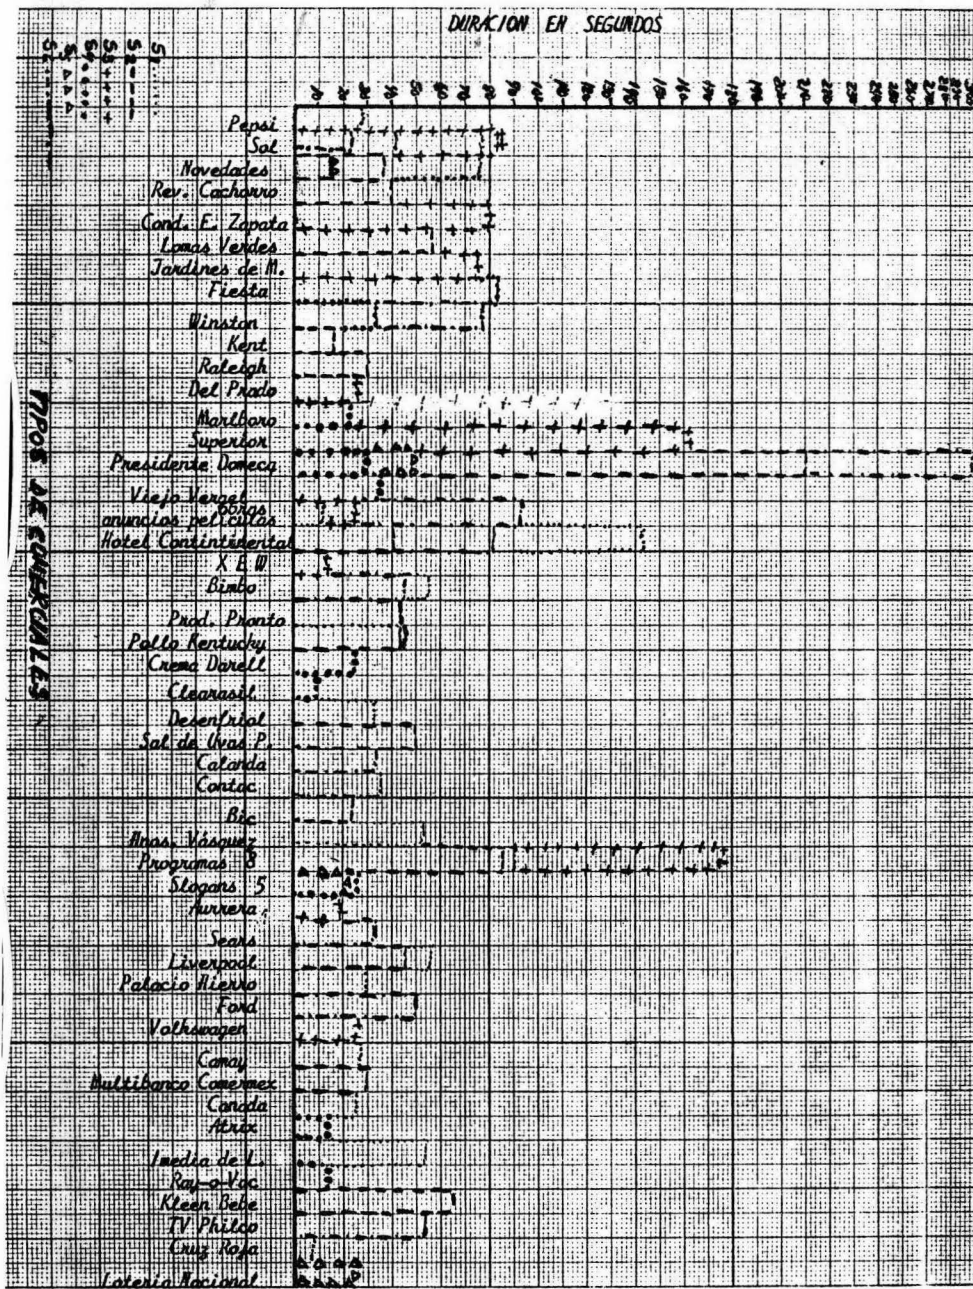 DURACION EN SEGUNDOS
S1
S2
S3 + + + +
TIPOS DE COMERCIALES
Pepsi
Sol
Novedades
Rev. Cachorro
Cond. E. Zapata
Lomas Verdes
Jardines de M.
Fiesta
Winston
Kent
Raleigh
Del Prado
Marlboro
Superior
Presidente Domecq
Viejo Vergel
anuncios películas
Hotel Contintenental
X E W
Bimbo
Prod. Pronto
Pollo Kentuchy
Crema Darell
Clearasil
Desenfriol
Sal de Uvas P.
Calanda
Contac
Bic
Hnos. Vásquez
Programas 8
Slogans 5
Aurrera
Sears
Liverpool
Palacio Hierro
Ford
Volkswagen
Camay
Multibanco Comermex
Canada
Atrix
Imedia de L.
Ray-o-Vac
Kleen Bebe
TV Philco
Cruz Roja
Loteria Nacional